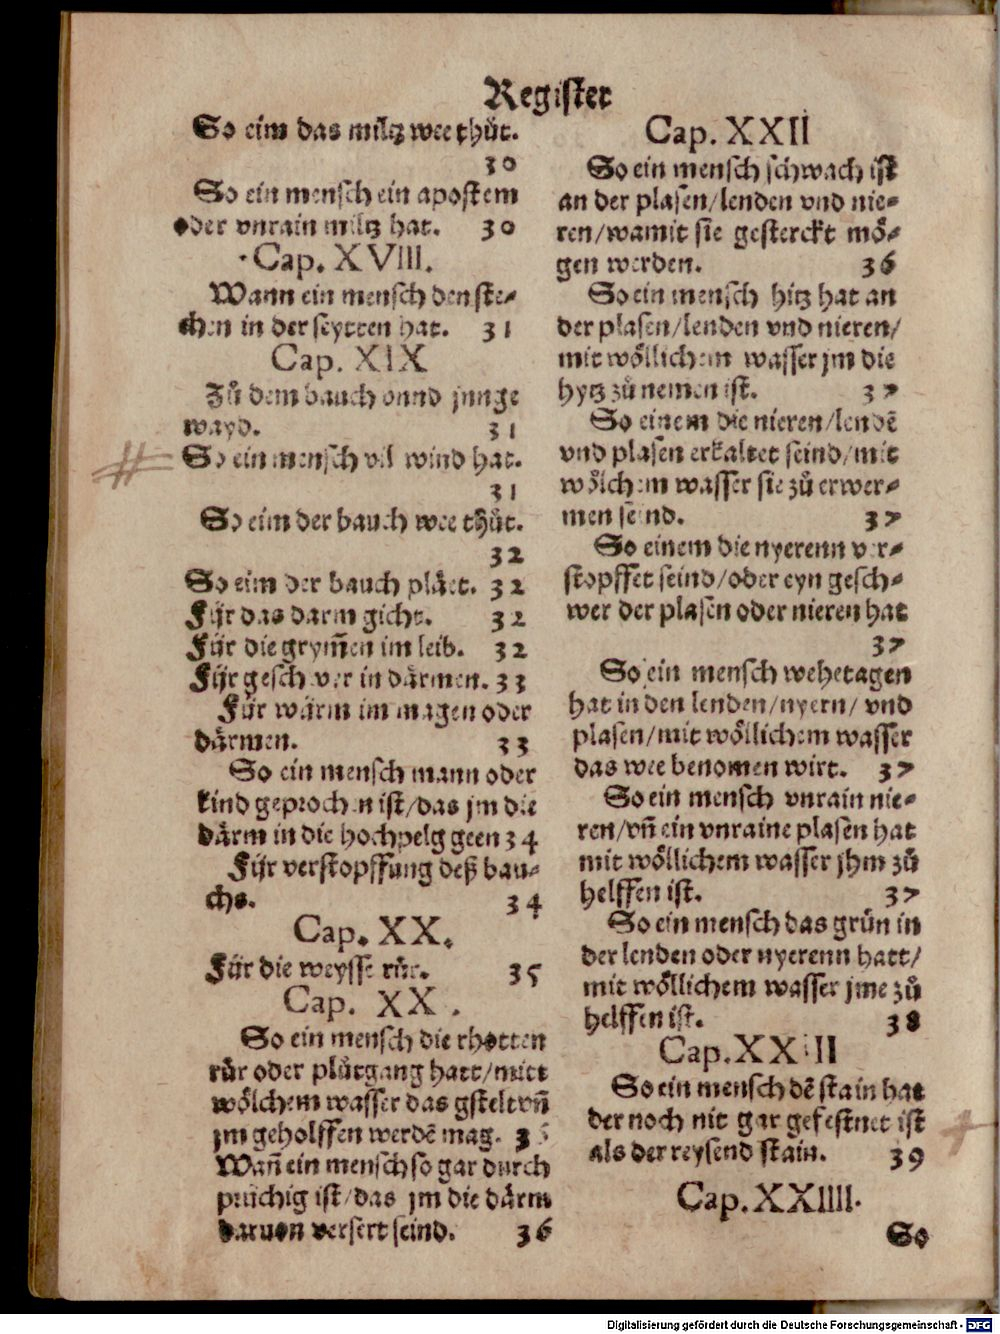 Register
So eim das miltz wee thůt.
30
So ein mensch ein apostem
oder vnrain miltz hat. 30
Cap. XVIII.
Wann ein mensch den ste-
chen in der seytten hat. 31
Cap. XIX
Zů dem bauch vnnd jnnge
wayd. 31
So ein mensch vil wind hat.
31
So eim der bauch wee thůt.
32
So eim der bauch pläet. 32
Für das darm gicht. 32
Für die grym̄en im leib. 32
Für geschwer in därmen. 33
Für würm im magen oder
därmen. 33
So ein mensch mann oder
kind geprochen ist/das jm die
därm in die hochpelg geen 34
Für verstopffung deß bau-
chs. 34
Cap. XX.
Für die weysse růr. 35
Cap. XX .
So ein mensch die rhotten
růr oder plůtgang hatt/mitt
wölchem wasser das gstelt vñ
jm geholffen werdē mag. 35
Wañ ein mensch so gar durch
prüchig ist/das jm die därm
daruon versert seind. 36
Cap. XXII
So ein mensch schwach ist
an der plasen/lenden vnd nie-
ren/wamit sie gesterckt mö-
gen werden. 36
So ein mensch hitz hat an
der plasen/lenden vnd nieren/
mit wöllichem wasser jm die
hytz zů nemen ist. 37
So einem die nieren/lendē
vnd plasen erkaltet seind/mit
wölchem wasser sie zů erwer-
men seind. 37
So einem die nyerenn ver-
stopffet seind/oder eyn gesch-
wer der plasen oder nieren hat
37
So ein mensch wehetagen
hat in den lenden/nyern/ vnd
plasen/mit wöllichem wasser
das wee benomen wirt. 37
So ein mensch vnrain nie-
ren/vñ ein vnraine plasen hat
mit wöllichem wasser jhm zů
helffen ist. 37
So ein mensch das grün in
der lenden oder nyerenn hatt/
mit wöllichem wasser jme zů
helffen ist. 38
Cap. XXIII
So ein mensch dē stain hat
der noch nit gar gefestnet ist
als der reysend stain. 39
Cap. XXIIII.
So
Digitalisierung gefördert durch die Deutsche Forschungsgemeinschaft - DFG